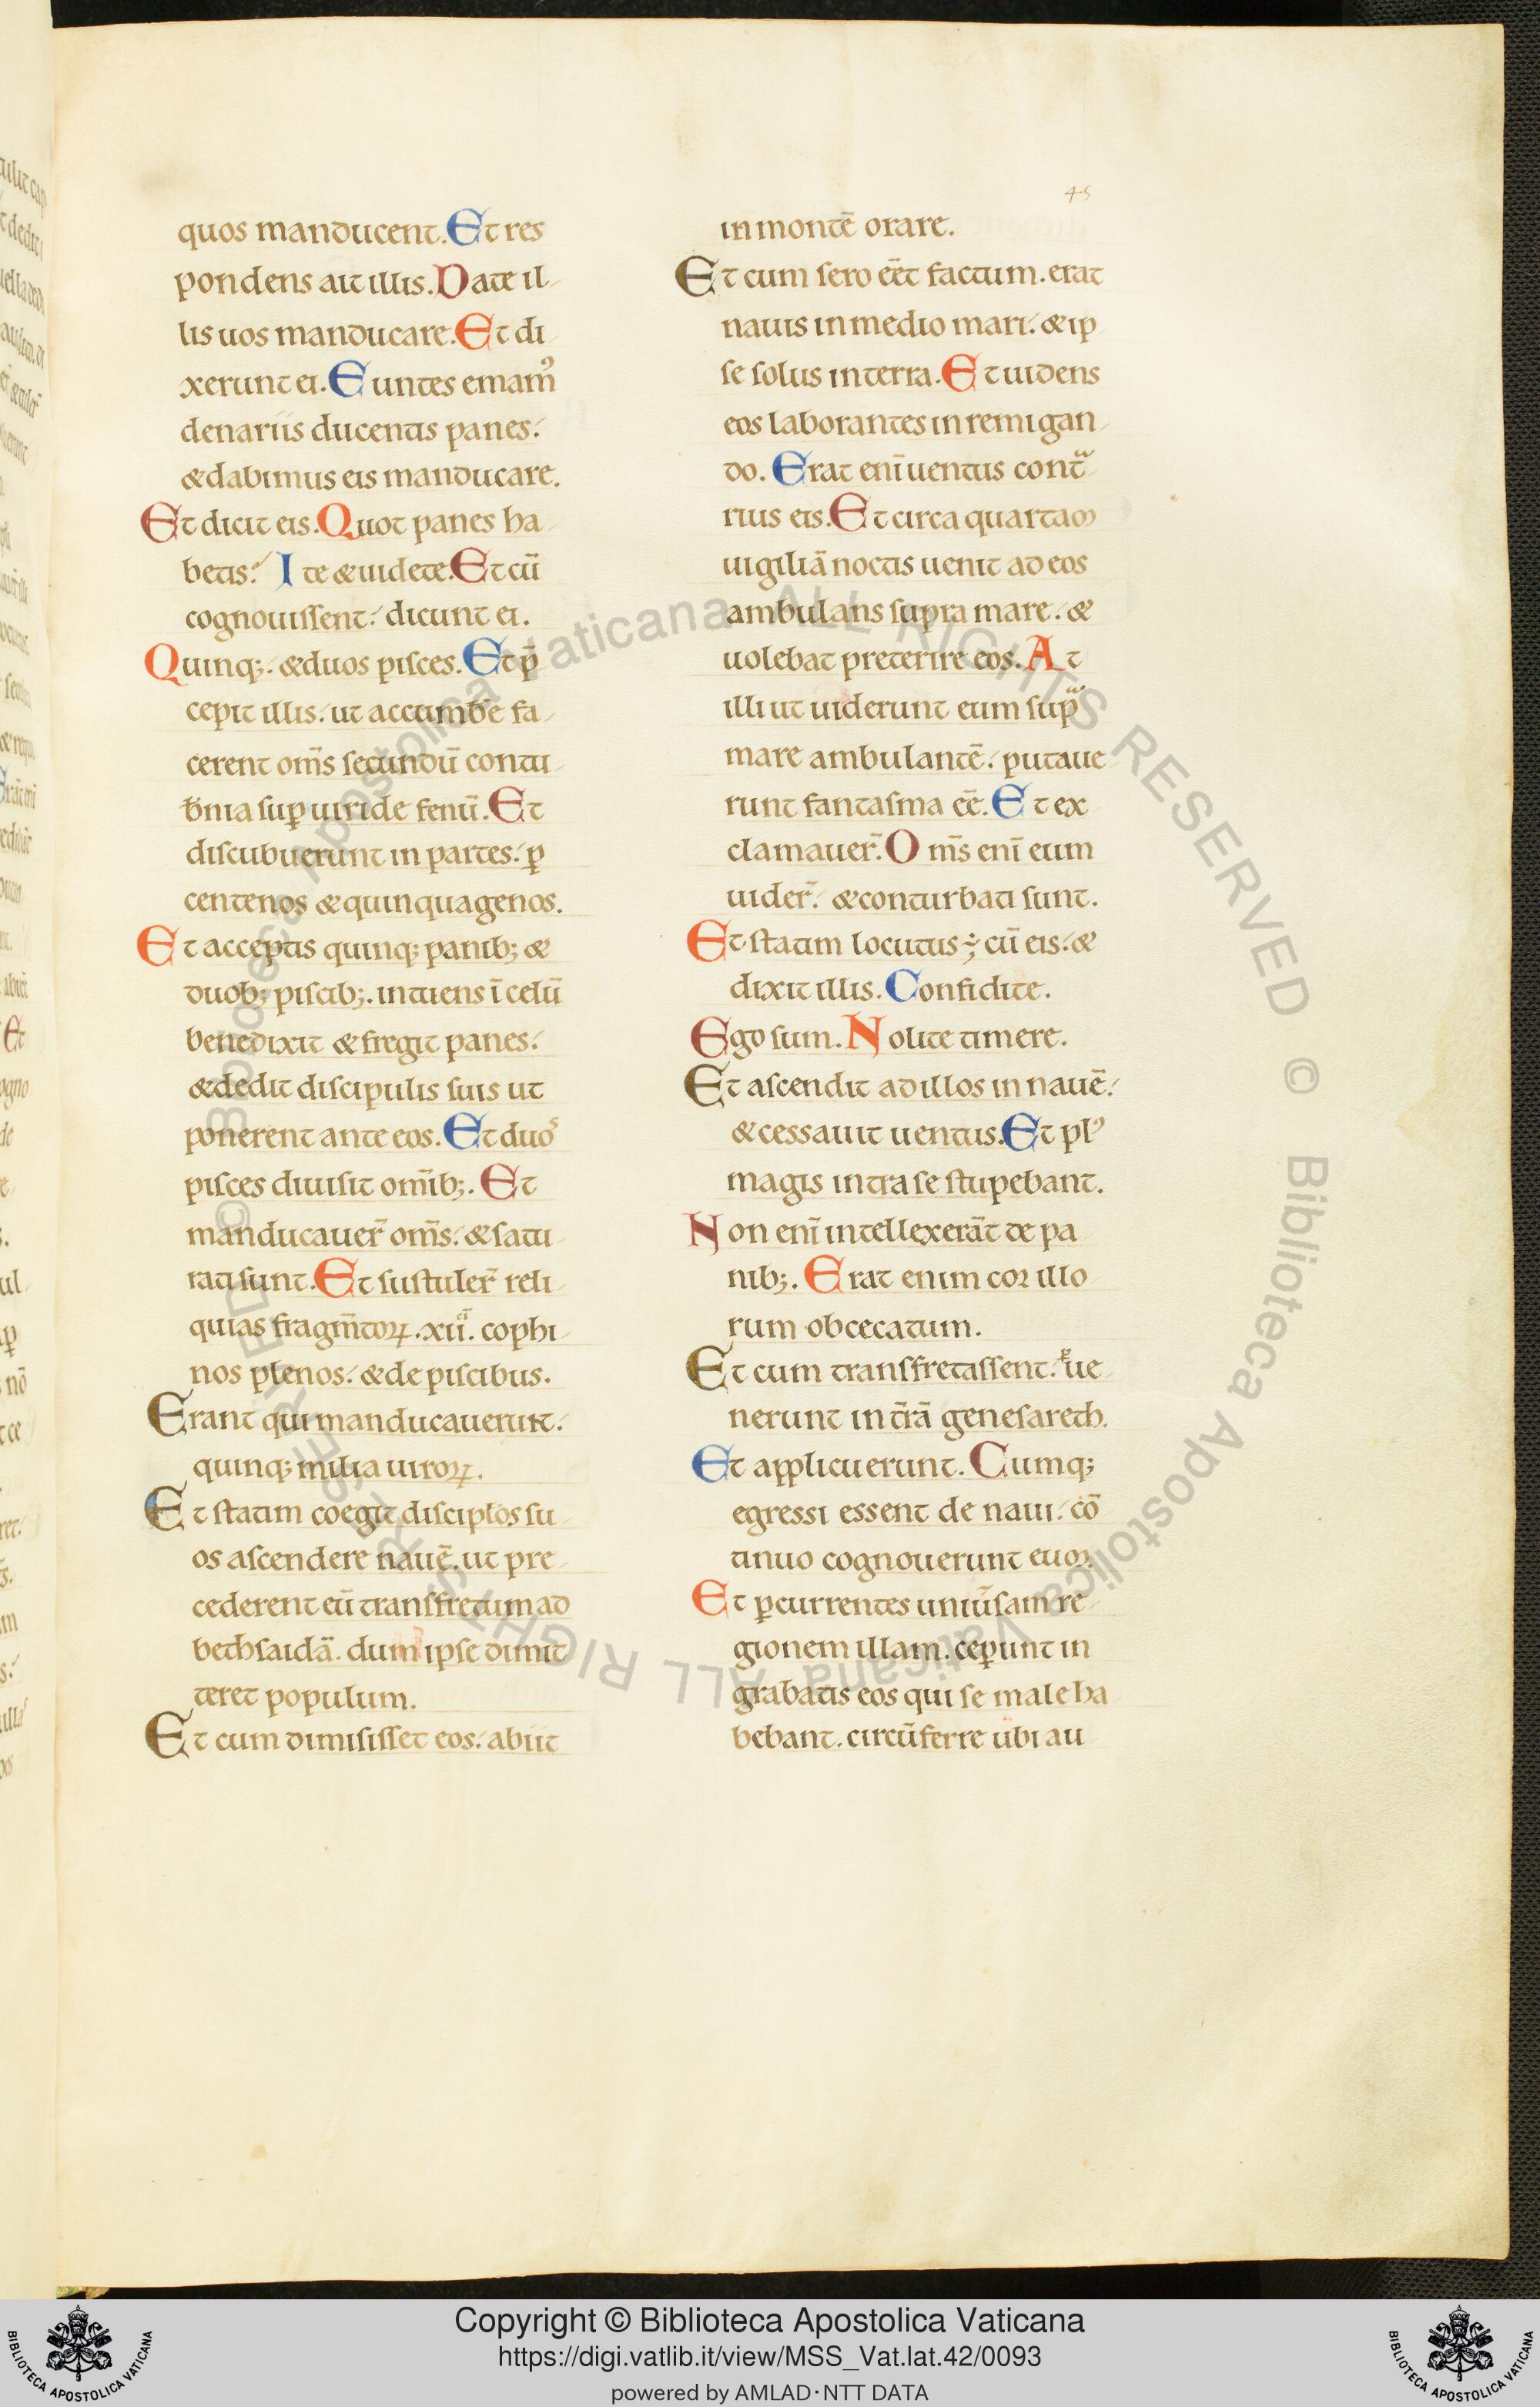 45
quos manducent. Et res
pondens ait illis. Date il
lis uos manducare. Et di
xerunt ei. Euntes emam᾿
denariis ducentis panes.
&dabimus eis manducare.
Et dicit eis. Quot panes ha
betis? Ite &uidete. Et cū
cognouissent. dicunt ei.
Quinq;. &duos pisces. Et p̄
cepit illis. ut accumbe᷑ fa
cerent om̄s secundū contu
b᷑nia suꝑ uiride fenū. Et
discubuerunt in partes. ꝑ
centenos &quinquagenos.
Et acceptis quinq; panib; &
duob; piscib;. intuens ī celū
benedixit &fregit panes.
&dedit discipulis suis ut
ponerent ante eos. Et duos
pisces diuisit om̄ib;. Et
manducauer̄ om̄s. &satu
rati sunt. Et sustuler̄ reli
quias fragm̄toꝝ .xii. cophi
nos plenos. &de piscibus.
Erant qui manducauerunt.
quinq; milia uiroꝝ.
Et statim coegit discip̄los su
os ascendere nauē. ut pre
cederent eū transfretum ad
bethsaidā. dum ipse dimit
teret populum.
Et cum dimisisset eos. abiit
in montē orare.
Et cum sero eēt factum. erat
nauis in medio mari. &ip
se solus in terra. Et uidens
eos laborantes in remigan
do. Erat enī uentus contᵃ
rius eis. Et circa quartam
uigiliā noctis uenit ad eos
ambulans supra mare. &
uolebat preterire eos. At
illi ut uiderunt eum supᵃ
mare ambulantē. putaue
runt fantasma eē. Et ex
clamauer̄. Om̄s enī eum
uider̄. &conturbati sunt.
Et statim locutus ÷ cū eis. &
dixit illis. Confidite.
Ego sum. Nolite timere.
Et ascendit ad illos in nauē.
&cessauit uentus. Et pl᾿
magis intra se stupebant.
Non enī intellexerāt de pa
nib;. Erat enim cor illo
rum obcecatum.
Et cum transfretassent. ue
nerunt in t̄rā genesareth.
Et applicuerunt. Cumq;
egressi essent de naui. cō
tinuo cognouerunt eum.
Et ꝑcurrentes uniū̄sam re
gionem illam. ceꝑunt in
grabatis eos qui se male ha
bebant. circūferre ubi au
Copyright © Biblioteca Apostolica Vaticana
https://digi.vatlib.it/view/MSS_Vat.lat.42/0093
powered by AMLAD·NTT DATA
BIBLIOTECA APOSTOLICA VATICANA
BIBLIOTECA APOSTOLICA VATICANA